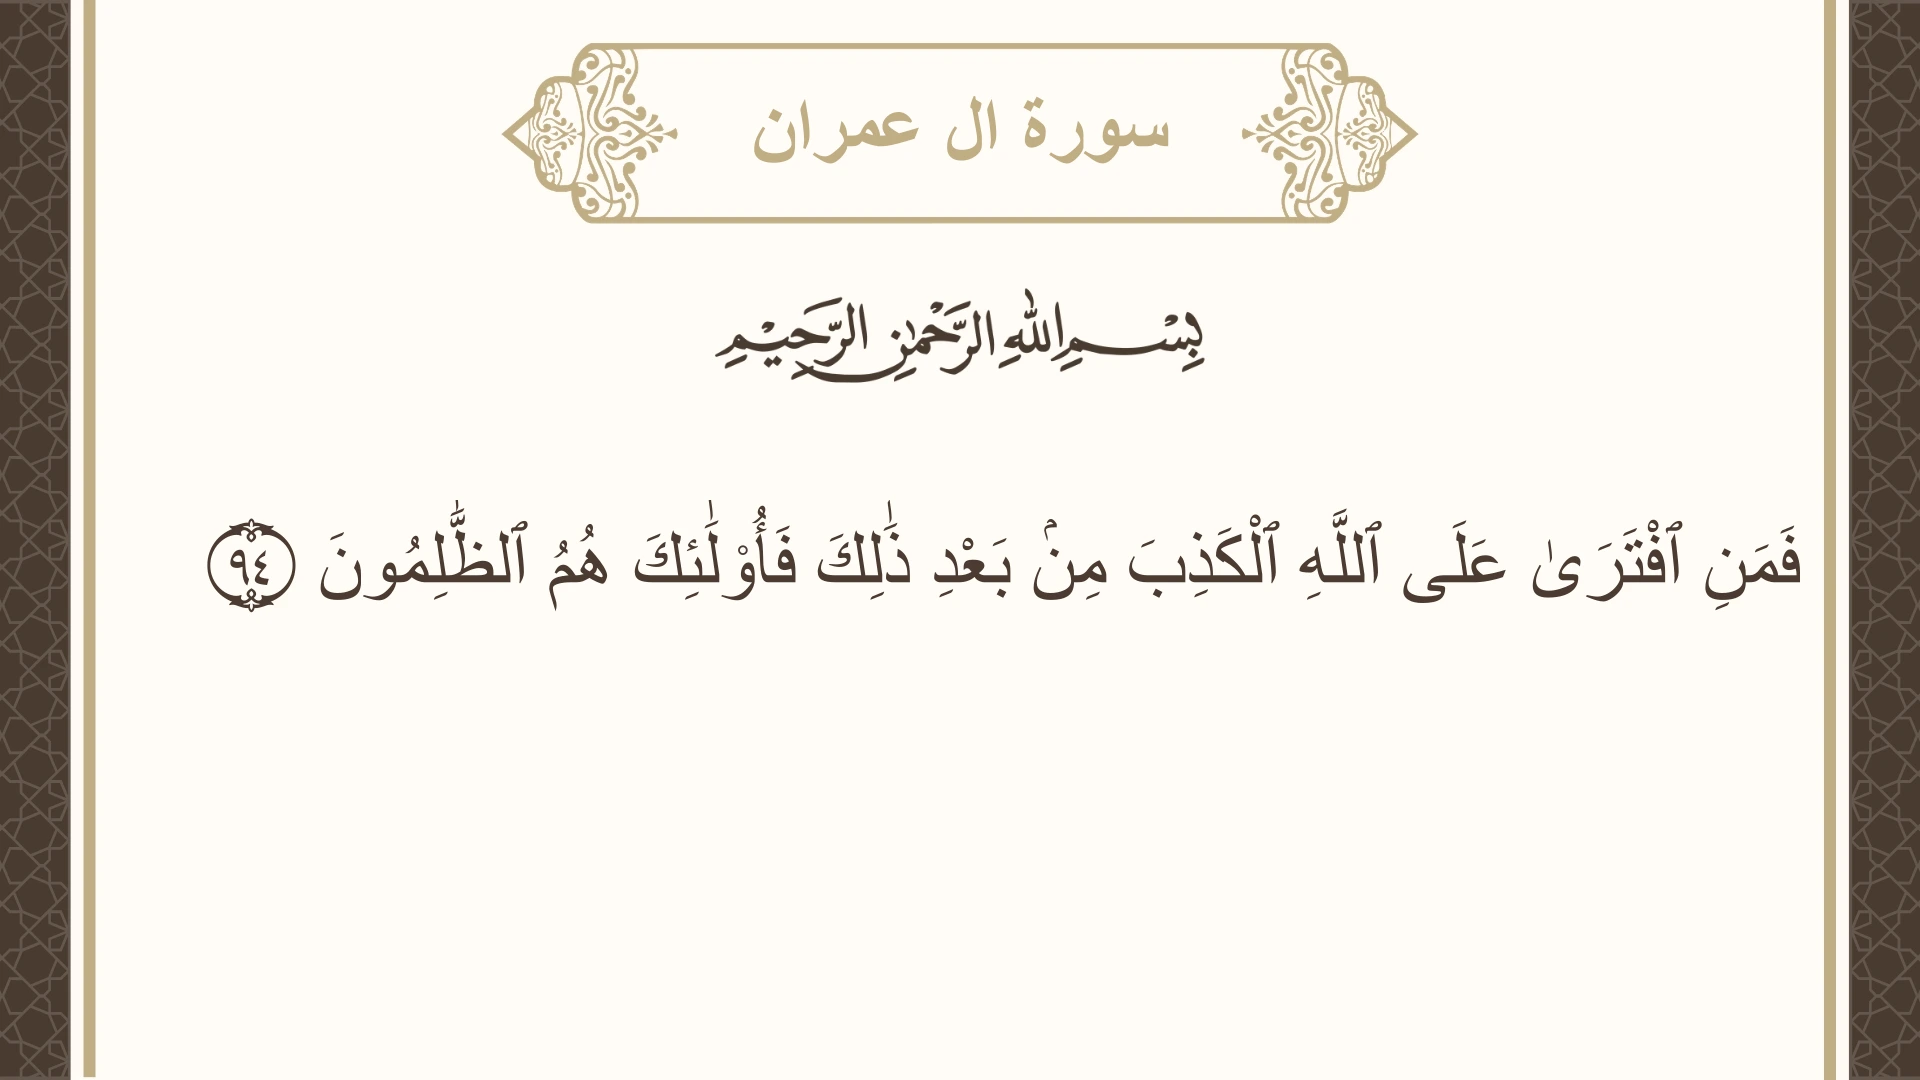 سورة ال عمران
بِسْمِ اللهِ الرَّحْمٰنِ الرَّحِيْمِ
فَمَنِ ٱفْتَرَىٰ عَلَى ٱللَّهِ ٱلْكَذِبَ مِنۢ بَعْدِ ذَٰلِكَ فَأُو۟لَٰٓئِكَ هُمُ ٱلظَّٰلِمُونَ ٩٤